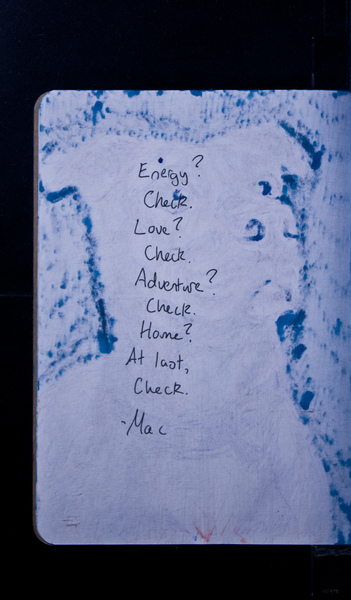 Energy?
Check.
Love?
Check.
Adventure?
Check.
Home?
At last,
Check.
-Mac